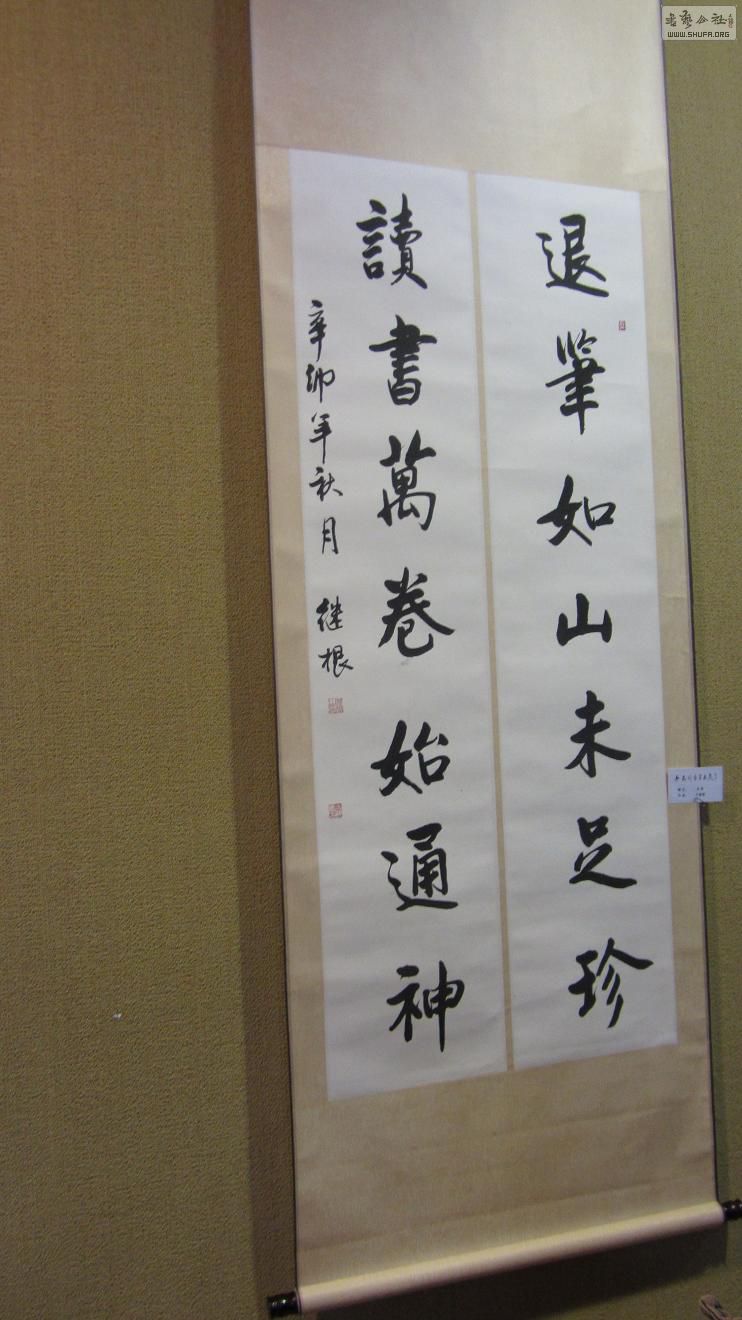 退筆如山未足珍
讀書萬卷始通神
辛卯年秋月 继根
WWW.SHUFA.ORG